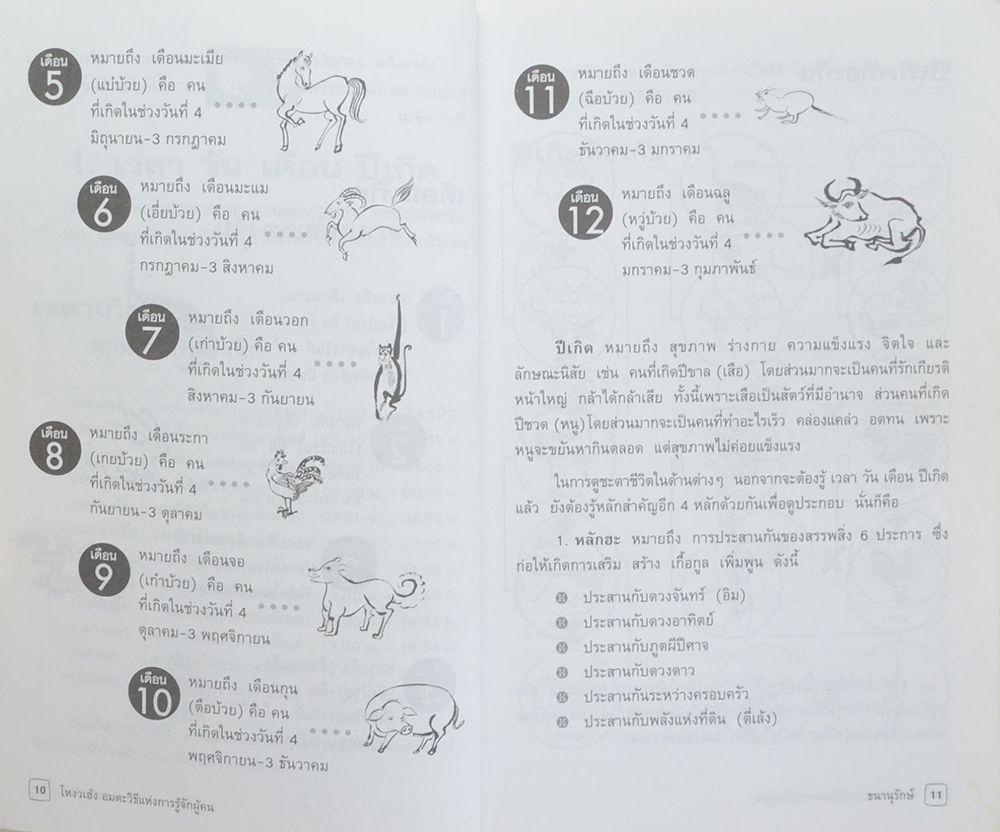 เดือน
5
หมายถึง เดือนมะเมีย
(แบ่บ้วย) คือ คน
ที่เกิดในช่วงวันที่ 4
มิถุนายน-3 กรกฎาคม
เดือน
6
หมายถึง เดือนมะแม
(เอี่ยบ้วย) คือ คน
ที่เกิดในช่วงวันที่ 4
กรกฎาคม-3 สิงหาคม
เดือน
7
หมายถึง เดือนวอก
(เก่าบ้วย) คือ คน
ที่เกิดในช่วงวันที่ 4
สิงหาคม-3 กันยายน
เดือน
8
หมายถึง เดือนระกา
(เกยบ้วย) คือ คน
ที่เกิดในช่วงวันที่ 4
กันยายน-3 ตุลาคม
เดือน
9
หมายถึง เดือนจอ
(เก๋าบ้วย) คือ คน
ที่เกิดในช่วงวันที่ 4
ตุลาคม-3 พฤศจิกายน
เดือน
10
หมายถึง เดือนกุน
(ตือบ้วย) คือ คน
ที่เกิดในช่วงวันที่ 4
พฤศจิกายน-3 ธันวาคม
10 โหงวเฮ้ง อมตะวิธีแห่งการรู้จักผู้คน
เดือน
11
หมายถึง เดือนชวด
(ฉือบ้วย) คือ คน
ที่เกิดในช่วงวันที่ 4
ธันวาคม-3 มกราคม
เดือน
12
หมายถึง เดือนฉลู
(หวู่บ้วย) คือ คน
ที่เกิดในช่วงวันที่ 4
มกราคม-3 กุมภาพันธ์
ปีเกิด หมายถึง สุขภาพ ร่างกาย ความแข็งแรง จิตใจ และ
ลักษณะนิสัย เช่น คนที่เกิดปีขาล (เสือ) โดยส่วนมากจะเป็นคนที่รักเกียรติ
หน้าใหญ่ กล้าได้กล้าเสีย ทั้งนี้เพราะเสือเป็นสัตว์ที่มีอำนาจ ส่วนคนที่เกิด
ปีชวด (หนู) โดยส่วนมากจะเป็นคนที่ทำอะไรเร็ว คล่องแคล่ว อดทน เพราะ
หนูจะขยันหากินตลอด แต่สุขภาพไม่ค่อยแข็งแรง
ในการดูชะตาชีวิตในด้านต่างๆ นอกจากจะต้องรู้ เวลา วัน เดือน ปีเกิด
แล้ว ยังต้องรู้หลักสำคัญอีก 4 หลักด้วยกันเพื่อดูประกอบ นั่นก็คือ
1. หลักฮะ หมายถึง การประสานกันของสรรพสิ่ง 6 ประการ ซึ่ง
ก่อให้เกิดการเสริม สร้าง เกื้อกูล เพิ่มพูน ดังนี้
ประสานกับดวงจันทร์ (อิม)
ประสานกับดวงอาทิตย์
ประสานกับภูตผีปีศาจ
ประสานกับดวงดาว
ประสานกันระหว่างครอบครัว
ประสานกับพลังแห่งที่ดิน (ตี่เล้ง)
ธนานุรักษ์ 11